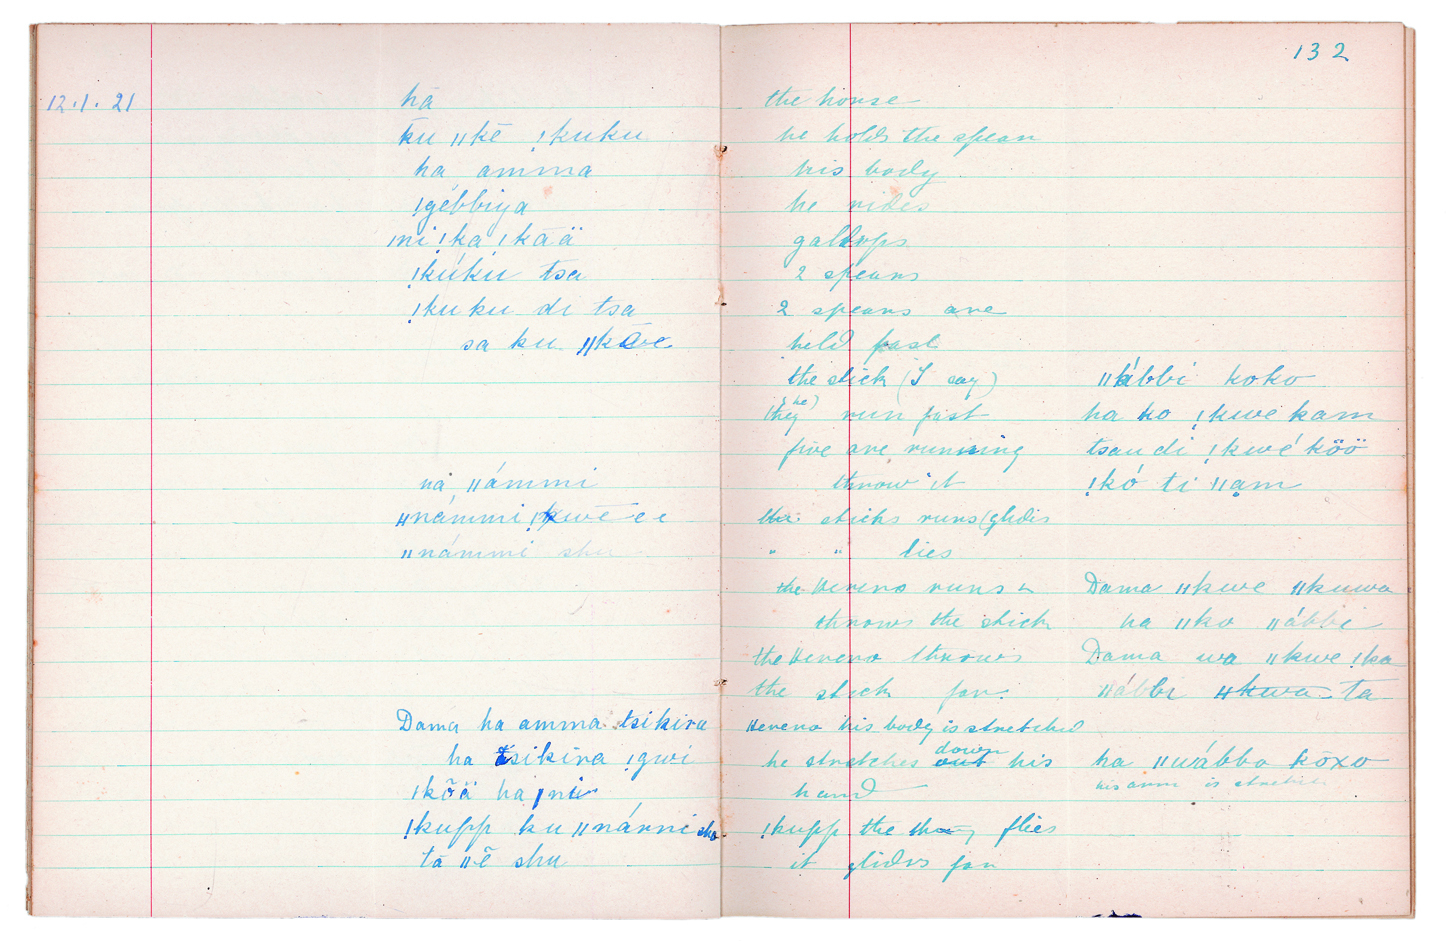 132
12.1.21 hā the horse
ku ǁkē !kuku he holds the spear
ha amma his body
!gébbiya he rides
ǀni !ka ǀkãä gallops
!kúku tsa 2 spears
!kuku di tsa 2 spears are
sa ku ǁkāve held fast
the stick (I say) ǁábbi koko
they (he) run fast ha ko !kwe kam
five are running tsau di !kwé köö
ná ǁámmi throw it !kó ti ǁam
ǁnámmi !kwē e e the sticks runs (glides
ǁnámmi shu " " lies
the Herero runs & Dama ǁkwe ǁkuwa
throws the stick ha ǁko ǁábbi
the Herero throws Dama wa ǁkwe !ka
the stick far. ǁábbi ǁkwa ta
Dama ha amma tsikira Herero his body is stretched
ha tsikira !gwi he stretches out down his ha ǁwábba kōxo
ǀkõä ha ǀni hand his arm is
!kupp ku ǁnánni sha !kupp the thong flies
tā ǁē shu it glides far